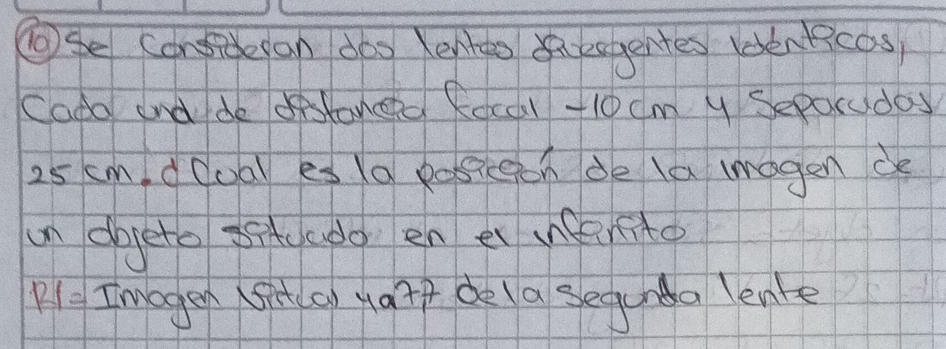 10 Se consideran dos lentes divergentes identicos,
Cada una de distancia focal -10 cm y Separados
25 cm. ¿Cual es la posición de la imagen de
un objeto situado en el infinito
R/= Imagen a 7,7 de la segunda lente